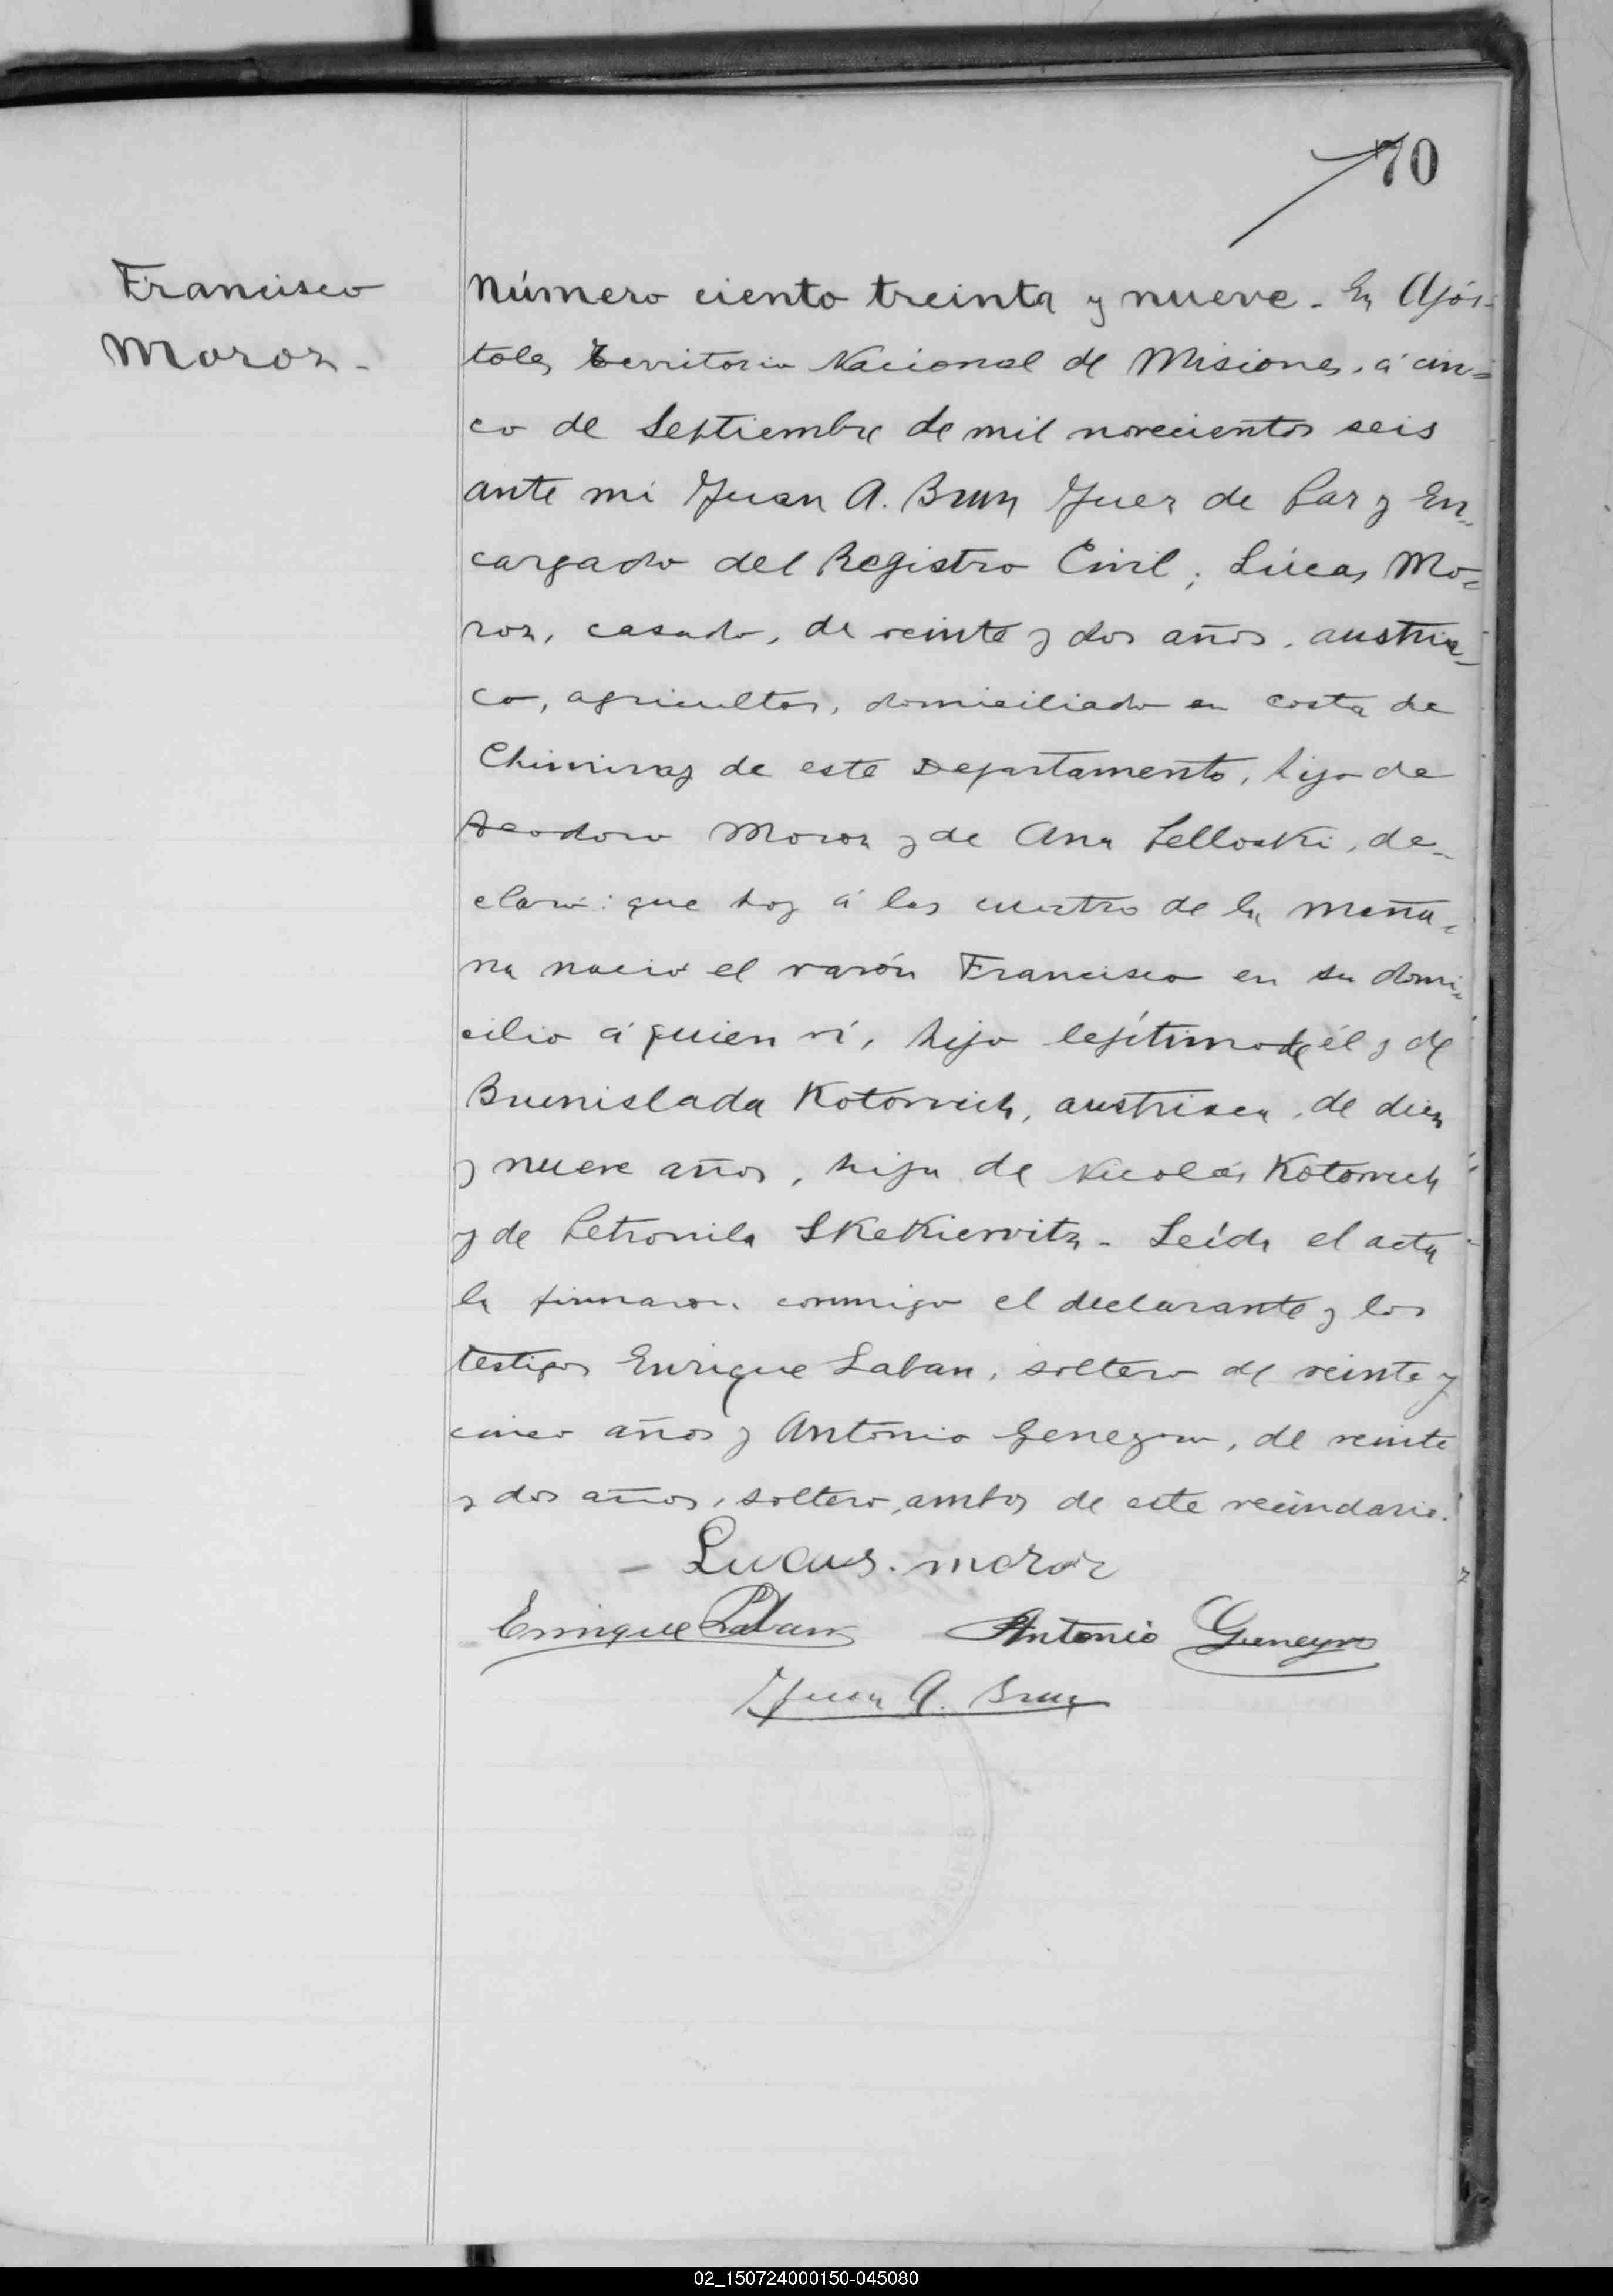 70
Francisco
Moroz -
Número ciento treinta y nueve - En Após-
toles Territorio Nacional de Misiones, á cin-
co de Septiembre de mil novecientos seis
ante mi Juan A. Brun Juez de Paz y En-
cargado del Registro Civil; Lúcas Mo-
roz, casado, de veinte y dos años, austria-
co, agricultor, domiciliado en costa de
Chimiray de este Departamento, hijo de
Teodoro Moroz y de Ana Pelloski, de-
claró: que hoy á las cuatro de la maña-
na nació el varón Francisco en su domi-
cilio á quien ví, hijo legítimo de él y de
Buenislada Kotorvich, austriaca, de diez
y nueve años, hija de Nicolás Kotorvich
y de Petronila Skekiervitz - Leída el acta
la firmaron conmigo el declarante y los
testigos Enrique Laban, soltero de veinte y
cinco años y Antonio Geneyro, de veinte
y dos años, soltero, ambos de este vecindario.
- Lucas. moroz
Enrique Laban Antonio Geneyro
Juan A. Brun
MISIONES
02_150724000150-045080